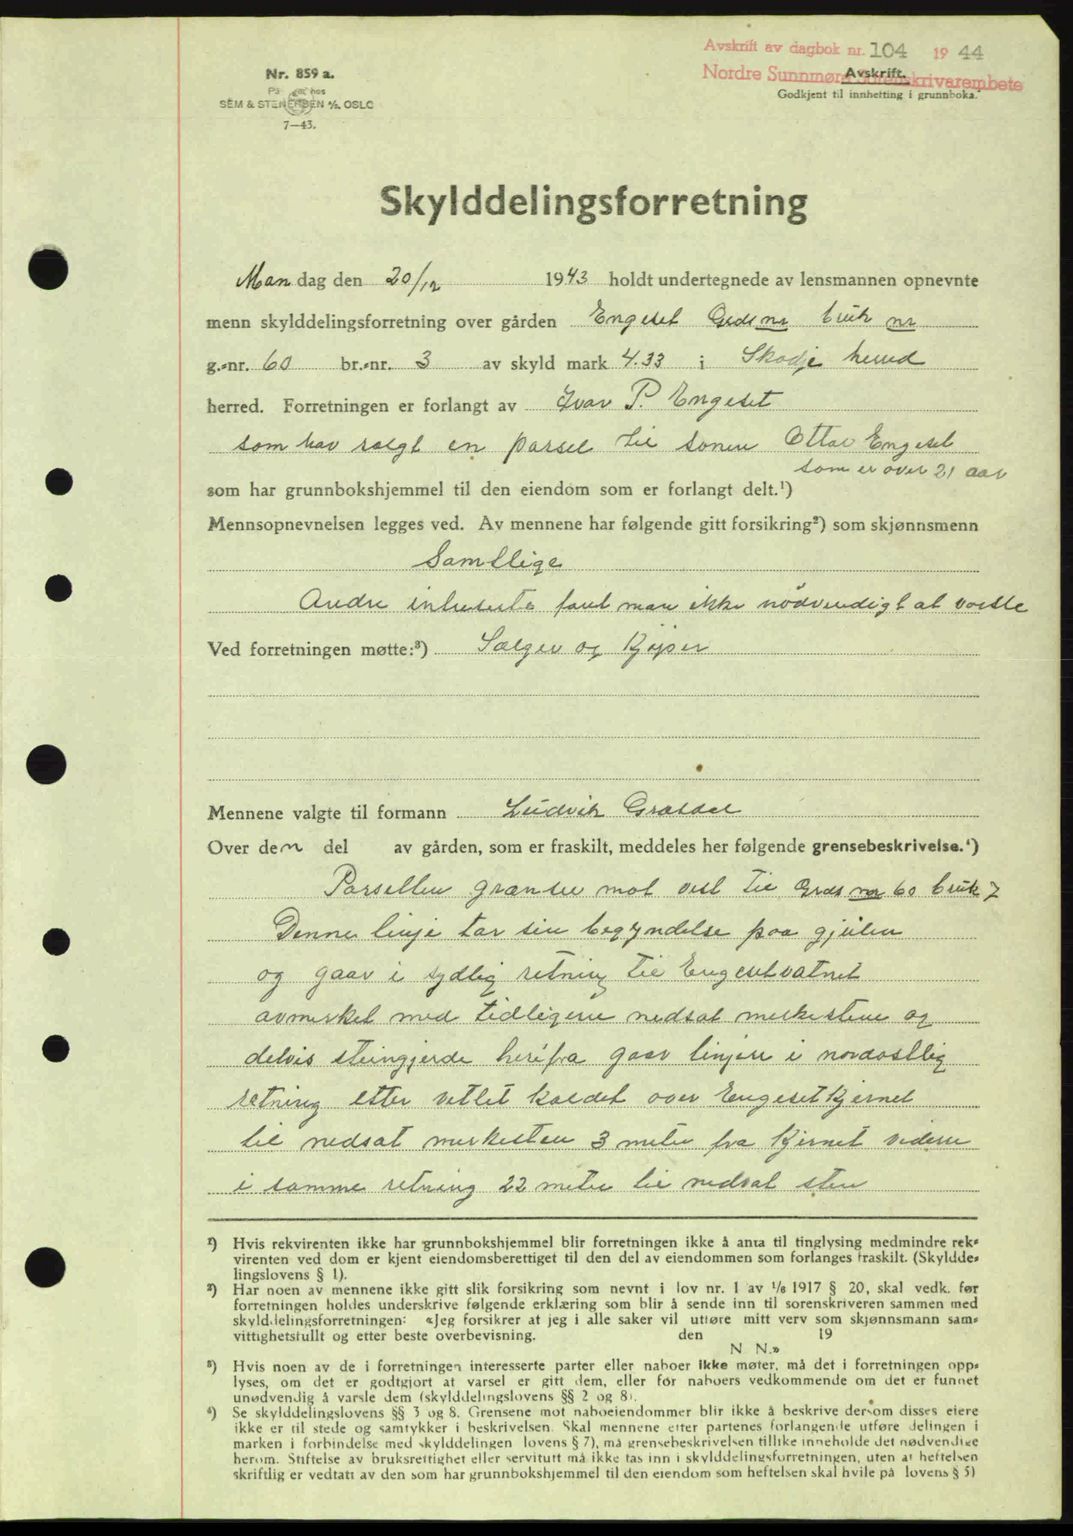 Avskrift av dagbok nr. 104 1944
Nordre Sunnmøre Sorenskriverembete
Avskrift.
Godkjent til innhefting i grunnboka.
Nr. 859 a.
På hos
SEM & STENERSEN A/S. OSLO
7—43.
Skylddelingsforretning
Man dag den 20/12 1943 holdt undertegnede av lensmannen opnevnte
menn skylddelingsforretning over gården Engeset Grds nr bruk nr
g.-nr. 60 br.-nr. 3 av skyld mark 4.33 i Skodje herred
herred. Forretningen er forlangt av Ivar P. Engeset
som har solgt en parsel til sønen Ottar Engeset
som er over 21 aar
som har grunnbokshjemmel til den eiendom som er forlangt delt.¹)
Mennsopnevnelsen legges ved. Av mennene har følgende gitt forsikring²) som skjønnsmenn
Samtlige
Andre intreserte fant man ikke nödvendigt at varsle
Ved forretningen møtte:³) Sælger og Kjöper
Mennene valgte til formann Ludvik
Over den del av gården, som er fraskilt, meddeles her følgende grensebeskrivelse.⁴)
Parsellen grænser mot vest til Grds nr 60 bruk 7
Denne linje tar sin begyndelse paa gjeilen
og gaar i sydlig retning til Engesetvatnet
avmerket med tidligere nedsat merkestene og
delvis steingjerde herifra gaar linjen i nordostlig
retning etter vatlet kaldet over Engesetkjernet
til nedsat merkesten 3 meter fra Kjernet videre
i samme retning 22 meter til nedsat sten
¹) Hvis rekvirenten ikke har grunnbokshjemmel blir forretningen ikke å anta til tinglysing medmindre rek-
virenten ved dom er kjent eiendomsberettiget til den del av eiendommen som forlanges fraskilt. (Skyldde-
lingslovens § 1).
²) Har noen av mennene ikke gitt slik forsikring som nevnt i lov nr. 1 av 1/6 1917 § 20, skal vedk. før
forretningen holdes underskrive følgende erklæring som blir å sende inn til sorenskriveren sammen med
skylddelingsforretningen: «Jeg forsikrer at jeg i alle saker vil utføre mitt verv som skjønnsmann sam-
vittighetsfullt og etter beste overbevisning. den 19
N N.»
³) Hvis noen av de i forretningen interesserte parter eller naboer ikke møter, må det i forretningen opp-
lyses, om det er godtgjort at varsel er gitt dem, eller for naboers vedkommende om det er funnet
unødvendig å varsle dem (skylddelingslovens §§ 2 og 8).
⁴) Se skylddelingslovens §§ 3 og 8. Grensene mot naboeiendommer blir ikke å beskrive dersom disses eiere
ikke er til stede og samtykker i beskrivelsen. Skal mennene etter partenes forlangende utføre delingen i
marken i forbindelse med skylddelingen lovens § 7), må grensebeskrivelsen tillike inneholde det nødvendige
herom. Stiftelse av bruksrettighet eller servitutt må ikke tas inn i skylddelingsforretningen, uten at heftelsen
skriftlig er vedtatt av den som har grunnbokshjemmel til den eiendom som heftelsen skal hvile på lovens § 5)